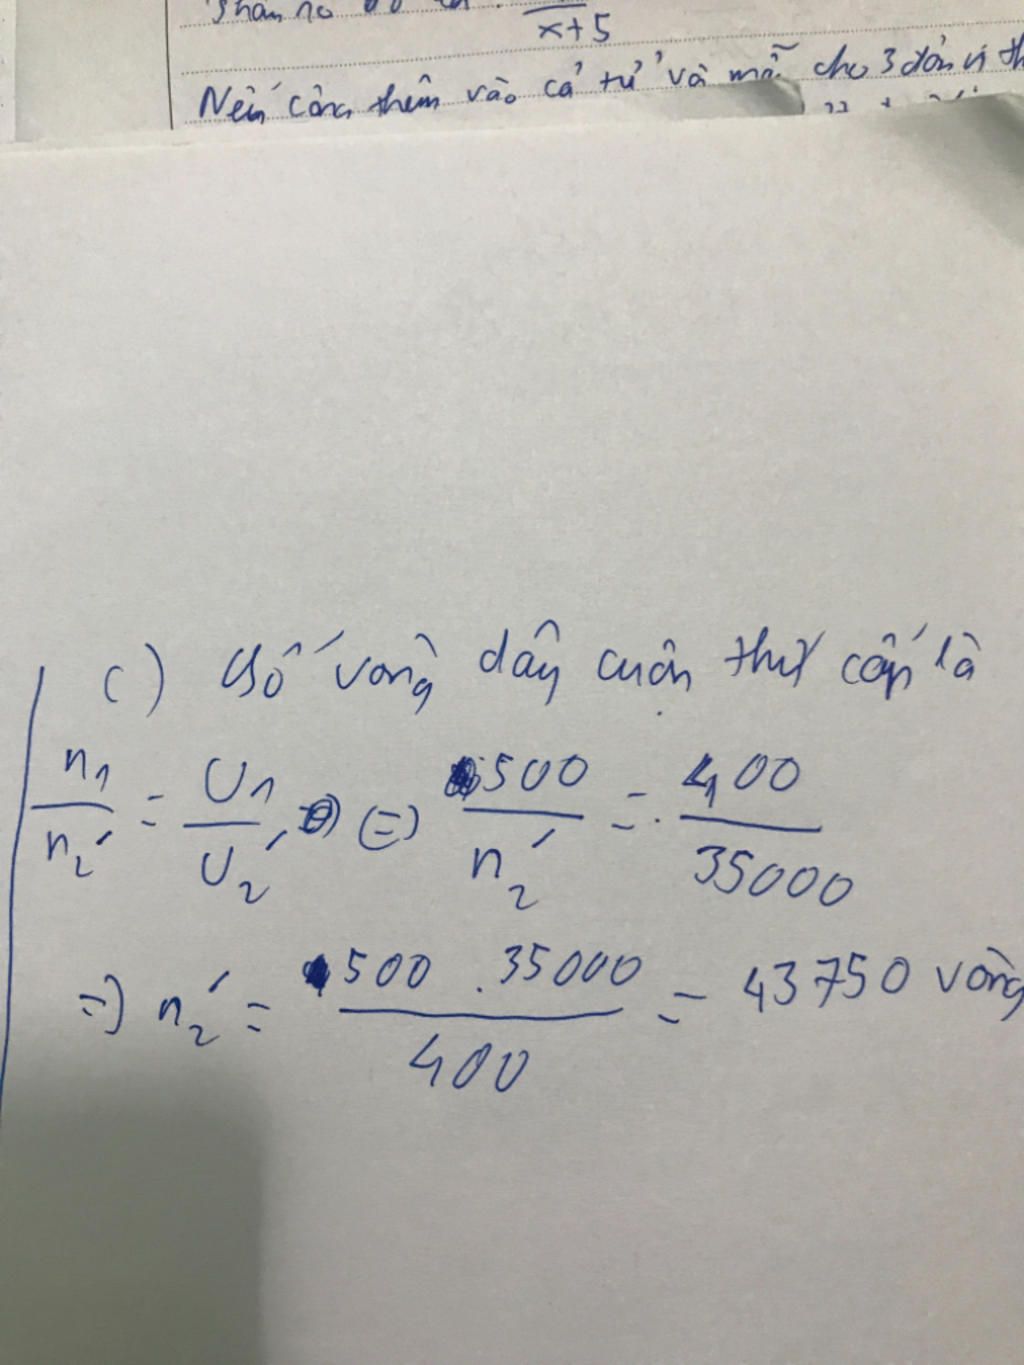 x+5
Nếu cộng thêm vào cả tử và mẫu cho 3 đơn vị th
c) Số vòng dây cuộn thứ cấp là
n1/n2' = U1/U2' (=) 500/n2' = 400/35000
=) n2' = 500 . 35000/400 = 43750 vòng